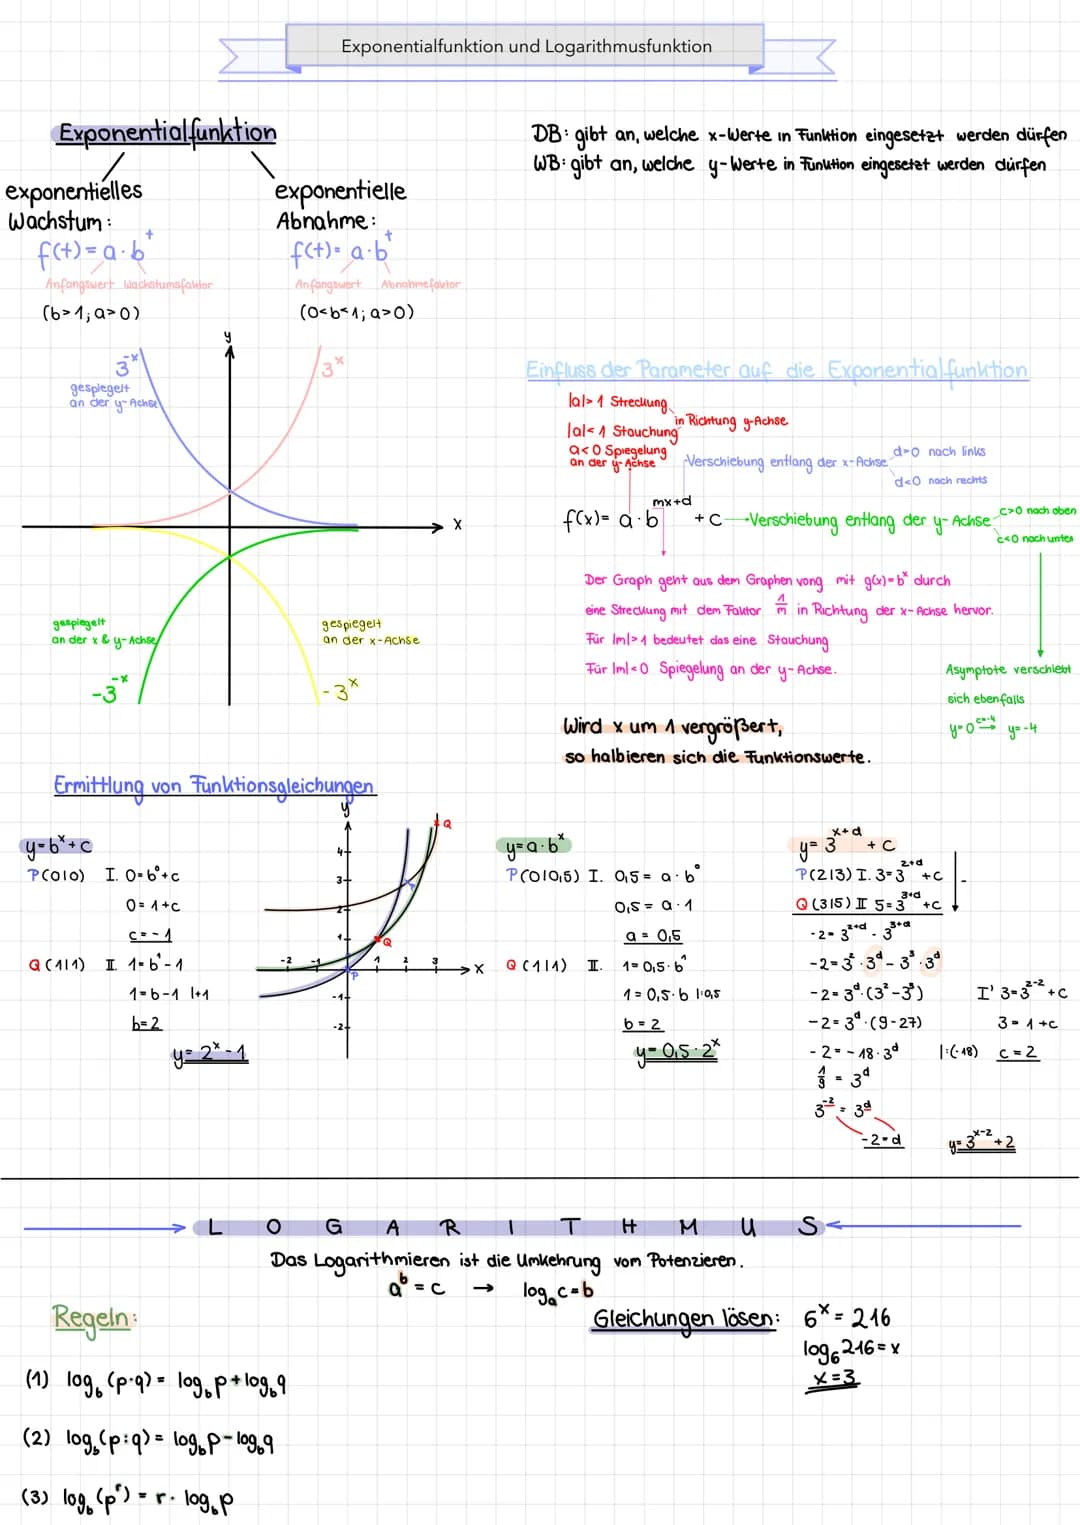 Exponentialfunktion und Logarithmusfunktion
Exponentialfunktion
DB: gibt an, welche x-Werte in Funktion eingesetzt werden dürfen
WB: gibt an, welche y-Werte in Funktion eingesetzt werden dürfen
exponentielles
Wachstum:
f(t) = a · b^t
Anfangswert Wachstumsfaktor
(b>1; a>0)
exponentielle
Abnahme:
f(t) = a · b^t
Anfangswert Abnahmefaktor
(0<b<1; a>0)
y
x
3^-x
gespiegelt
an der y-Achse
3^x
gespiegelt
an der x & y-Achse
-3^-x
gespiegelt
an der x-Achse
-3^x
Einfluss der Parameter auf die Exponentialfunktion
|a|>1 Streckung
|a|<1 Stauchung
in Richtung y-Achse
a<0 Spiegelung
an der y-Achse
Verschiebung entlang der x-Achse
d>0 nach links
d<0 nach rechts
f(x)= a · b^mx+d + c
Verschiebung entlang der y-Achse
c>0 nach oben
c<0 nach unten
Der Graph geht aus dem Graphen vong mit g(x)=b^x durch
eine Streckung mit dem Faktor 1/m in Richtung der x-Achse hervor.
Für |m|>1 bedeutet das eine Stauchung
Für |m|<0 Spiegelung an der y-Achse.
Asymptote verschiebt
sich ebenfalls
y=0 c=-4→ y=-4
Wird x um 1 vergrößert,
so halbieren sich die Funktionswerte.
Ermittlung von Funktionsgleichungen
y=b^x+c
P(0|0) I. 0=b^0+c
0=1+c
c=-1
Q(1|1) II. 1=b^1-1
1=b-1 |+1
b=2
y=2^x-1
y
4
3
2
1
-2 -1 1 2 3
x
-1
-2
Q
Q
P
y=a·b^x
P(0|0,5) I. 0,5=a·b^0
0,5=a·1
a=0,5
Q(1|1) II. 1=0,5·b^1
1=0,5·b |:0,5
b=2
y=0,5·2^x
y=3^x+d + c
P(2|3) I. 3=3^2+d +c
Q(3|5) II 5=3^3+d +c
-
-2=3^2+d - 3^3+d
-2=3^2·3^d - 3^3·3^d
-2=3^d·(3^2-3^3)
-2=3^d·(9-27)
-2=-18·3^d |:(-18)
1/9 = 3^d
3^-2 = 3^d
-2=d
I' 3=3^2-2+c
3=1+c
c=2
y=3^x-2+2
LOGARITHMUS
Das Logarithmieren ist die Umkehrung vom Potenzieren.
a^b = c → log_a c = b
Regeln:
(1) log_b (p·q) = log_b p + log_b q
(2) log_b (p:q) = log_b p - log_b q
(3) log_b (p^r) = r · log_b p
Gleichungen lösen: 6^x = 216
log_6 216 = x
x=3